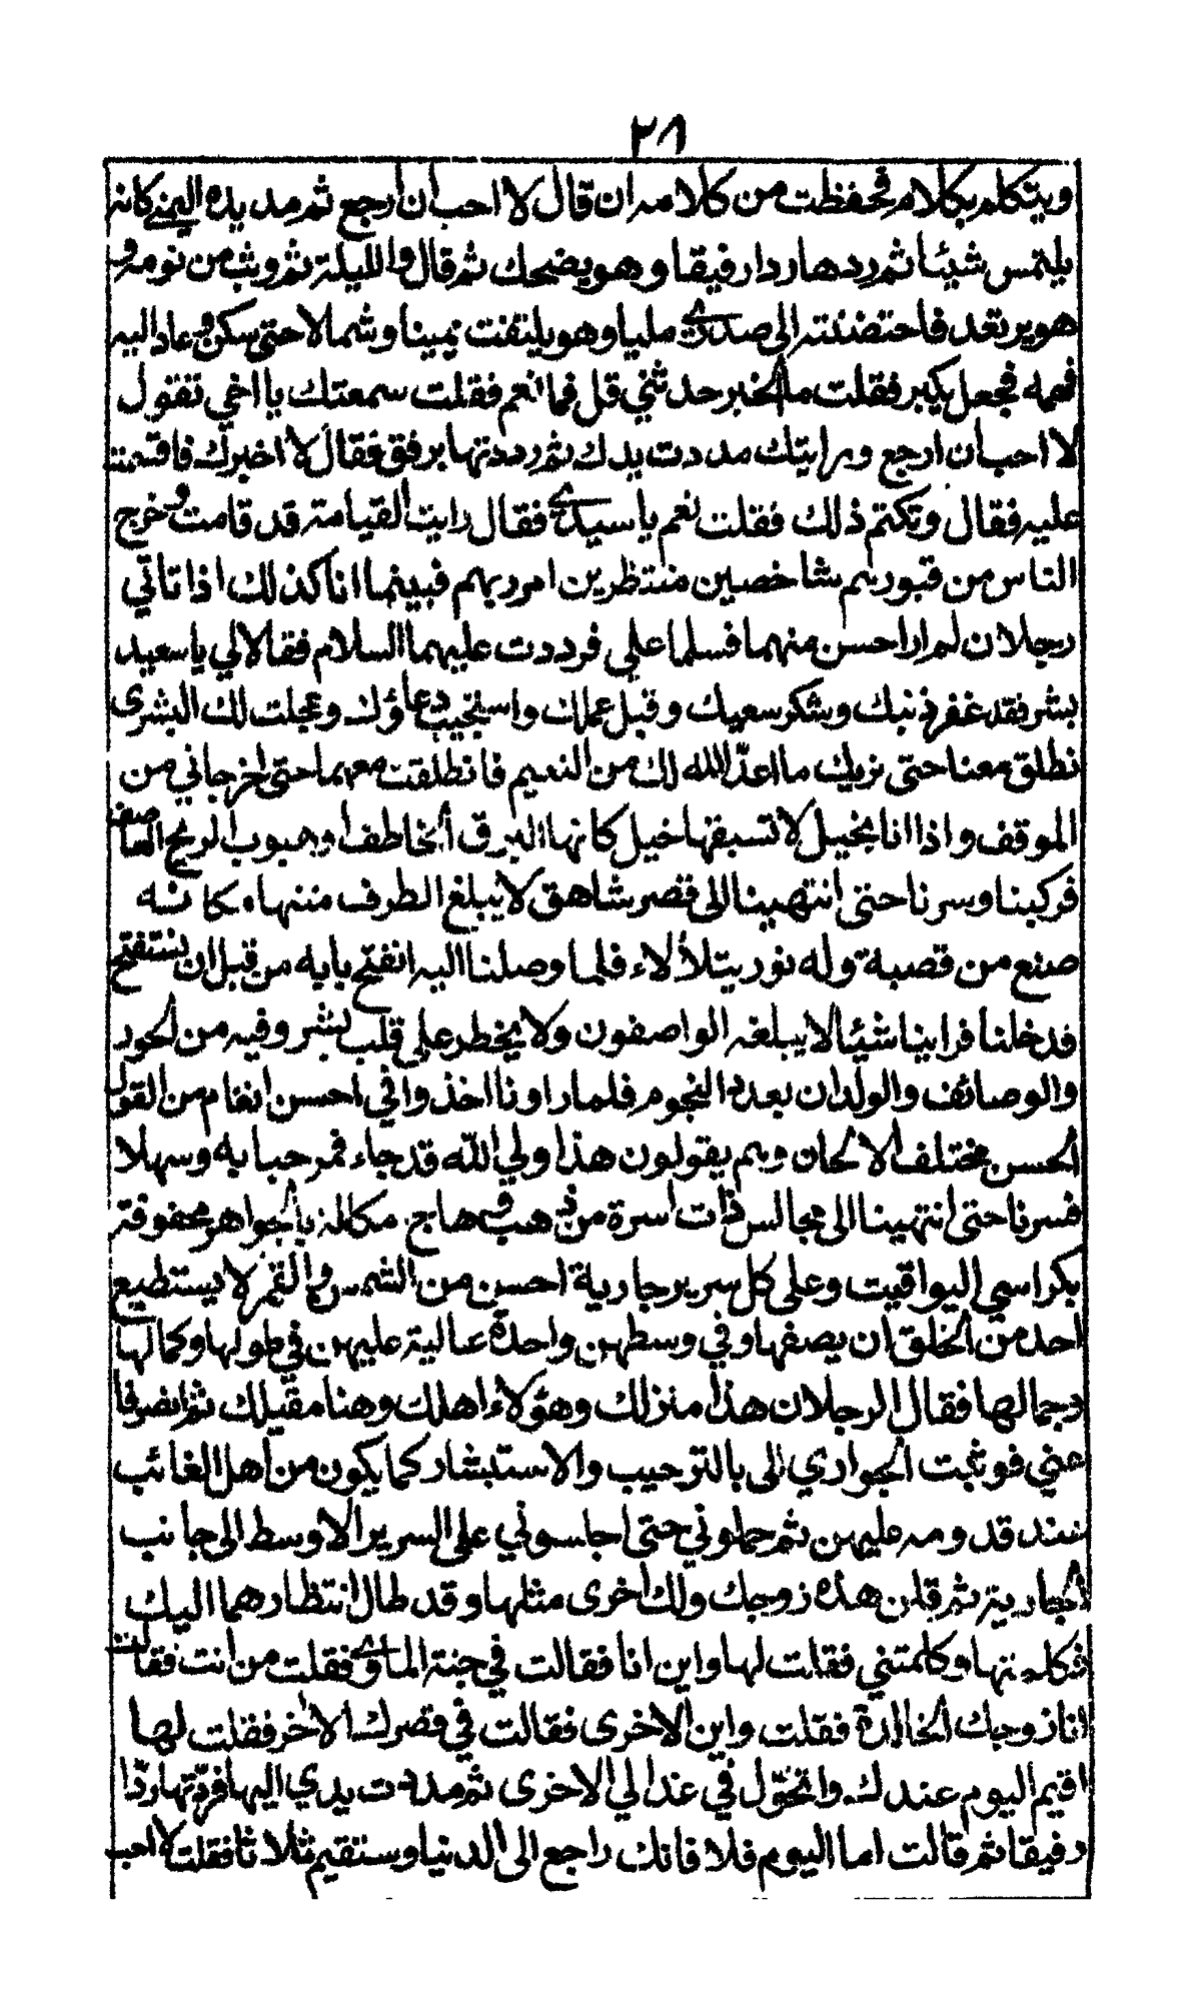 ٣٨
ويتكلم بكلام فحفظت من كلامه ان قال لا احب ان ارجع ثم مد يده اليمنى كانه
يلتمس شيئا ثم ردها ردا رفيقا وهو يضحك ثم قال والليلة ثم وثب من نومه و
هو يرتعد فاحتضنته الى صدري مليا وهو يلتفت يمينا وشمالا حتى سكن وعاد اليه
فهمه فجعل يكبر فقلت ما الخبر حدثني قل فما نعم فقلت سمعتك يا اخي تقول
لا احب ان ارجع ورايتك مددت يدك ثم رددتها برفق فقال لا اخبرك فاقسمت
عليه فقال وتكتم ذلك فقلت نعم يا سيدي فقال رايت القيامة قد قامت وخرج
الناس من قبورهم شاخصين منتظرين امر ربهم فبينما انا كذلك اذا تاتي
رجلان لم ار احسن منهما فسلما علي فرددت عليهما السلام فقالا لي يا سعيد
بشر فقد غفر ذنبك وشكر سعيك وقبل عملك واستجيب دعاؤك وعجلت لك البشرى
نطلق معنا حتى نريك ما اعدّ الله لك من النعيم فانطلقت معهما حتى اخرجاني من
الموقف واذا انا بخيل لا تسبقها خيل كانها البرق الخاطف او هبوب الريح العاصفة
فركبنا وسرنا حتى انتهينا الى قصر شاهق لا يبلغ الطرف منتهاه كانه
صنع من قصبة وله نور يتلألاء فلما وصلنا اليه انفتح بابه من قبل ان يستفتح
فدخلنا فراينا شيئا لا يبلغه الواصفون ولا يخطر على قلب بشر وفيه من الحور
والوصائف والولدان بعدد النجوم فلما راونا اخذوا في احسن انغام من القول
الحسن مختلف الالحان وهم يقولون هذا ولي الله قد جاء فمرحبا به وسهلا
فسرنا حتى انتهينا الى مجالس ذات اسرة من ذهب وهاج مكللة بالجواهر محفوفة
بكراسي اليواقيت وعلى كل سرير جارية احسن من الشمس والقمر لا يستطيع
احد من الخلق ان يصفها وفي وسطهن واحدة عالية عليهن في طولها وكمالها
وجمالها فقال الرجلان هذا منزلك وهؤلاء اهلك وهنا مقيلك ثم انصرفا
عني فوثبت الجواري الى بالترحيب والاستبشار كما يكون من اهل الغائب
عند قدومه عليهن ثم حملوني حتى اجلسوني على السرير الاوسط الى جانب
الجارية ثم قلن هذه زوجك ولك اخرى مثلها وقد طال انتظارهما اليك
فكلمتها وكلمتني فقلت لها واين انا فقالت في جنة الماوى فقلت من انت فقالت
انا زوجك الخالدة فقلت واين الاخرى فقالت في قصرك الاخر فقلت لها
اقيم اليوم عندك واتحوّل في غدا لي الاخرى ثم مددت يدي اليها فردّتها ردّا
رفيقا ثم قالت اما اليوم فلا فانك راجع الى الدنيا وستقيم ثلاثا فقلت لا احب